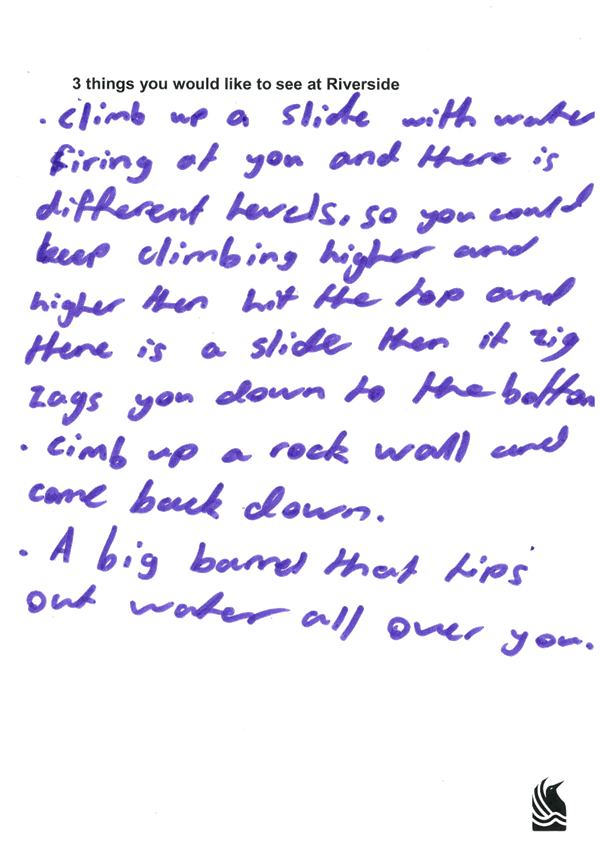 3 things you would like to see at Riverside
. climb up a slide with water
firing at you and there is
different levels, so you could
keep climbing higher and
higher then hit the top and
there is a slide then it zig
zags you down to the bottom
. cimb up a rock wall and
come back down.
. A big barrel that tips
out water all over you.